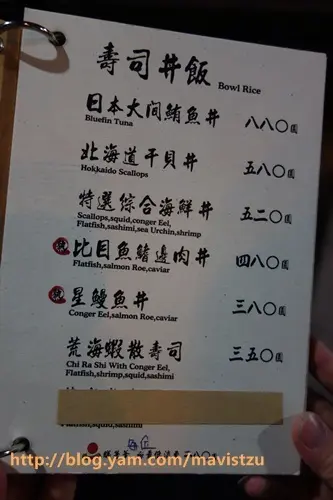 壽司丼飯 Bowl Rice
日本大间鮪魚丼 八八〇圓
Bluefin Tuna
北海道干貝丼 五八〇圓
Hokkaido Scallops
特選綜合海鮮丼 五二〇圓
Scallops,squid,conger Eel,
Flatfish,sashimi,sea Urchin,shrimp
比目魚鰭邊肉丼 四八〇圓
Flatfish,salmon Roe,caviar
星鰻魚丼 三八〇圓
Conger Eel,salmon Roe,caviar
荒海蝦散壽司 三五〇圓
Chi Ra Shi With Conger Eel,
Flatfish,shrimp,squid,sashimi
http://blog.yam.com/mavistzu